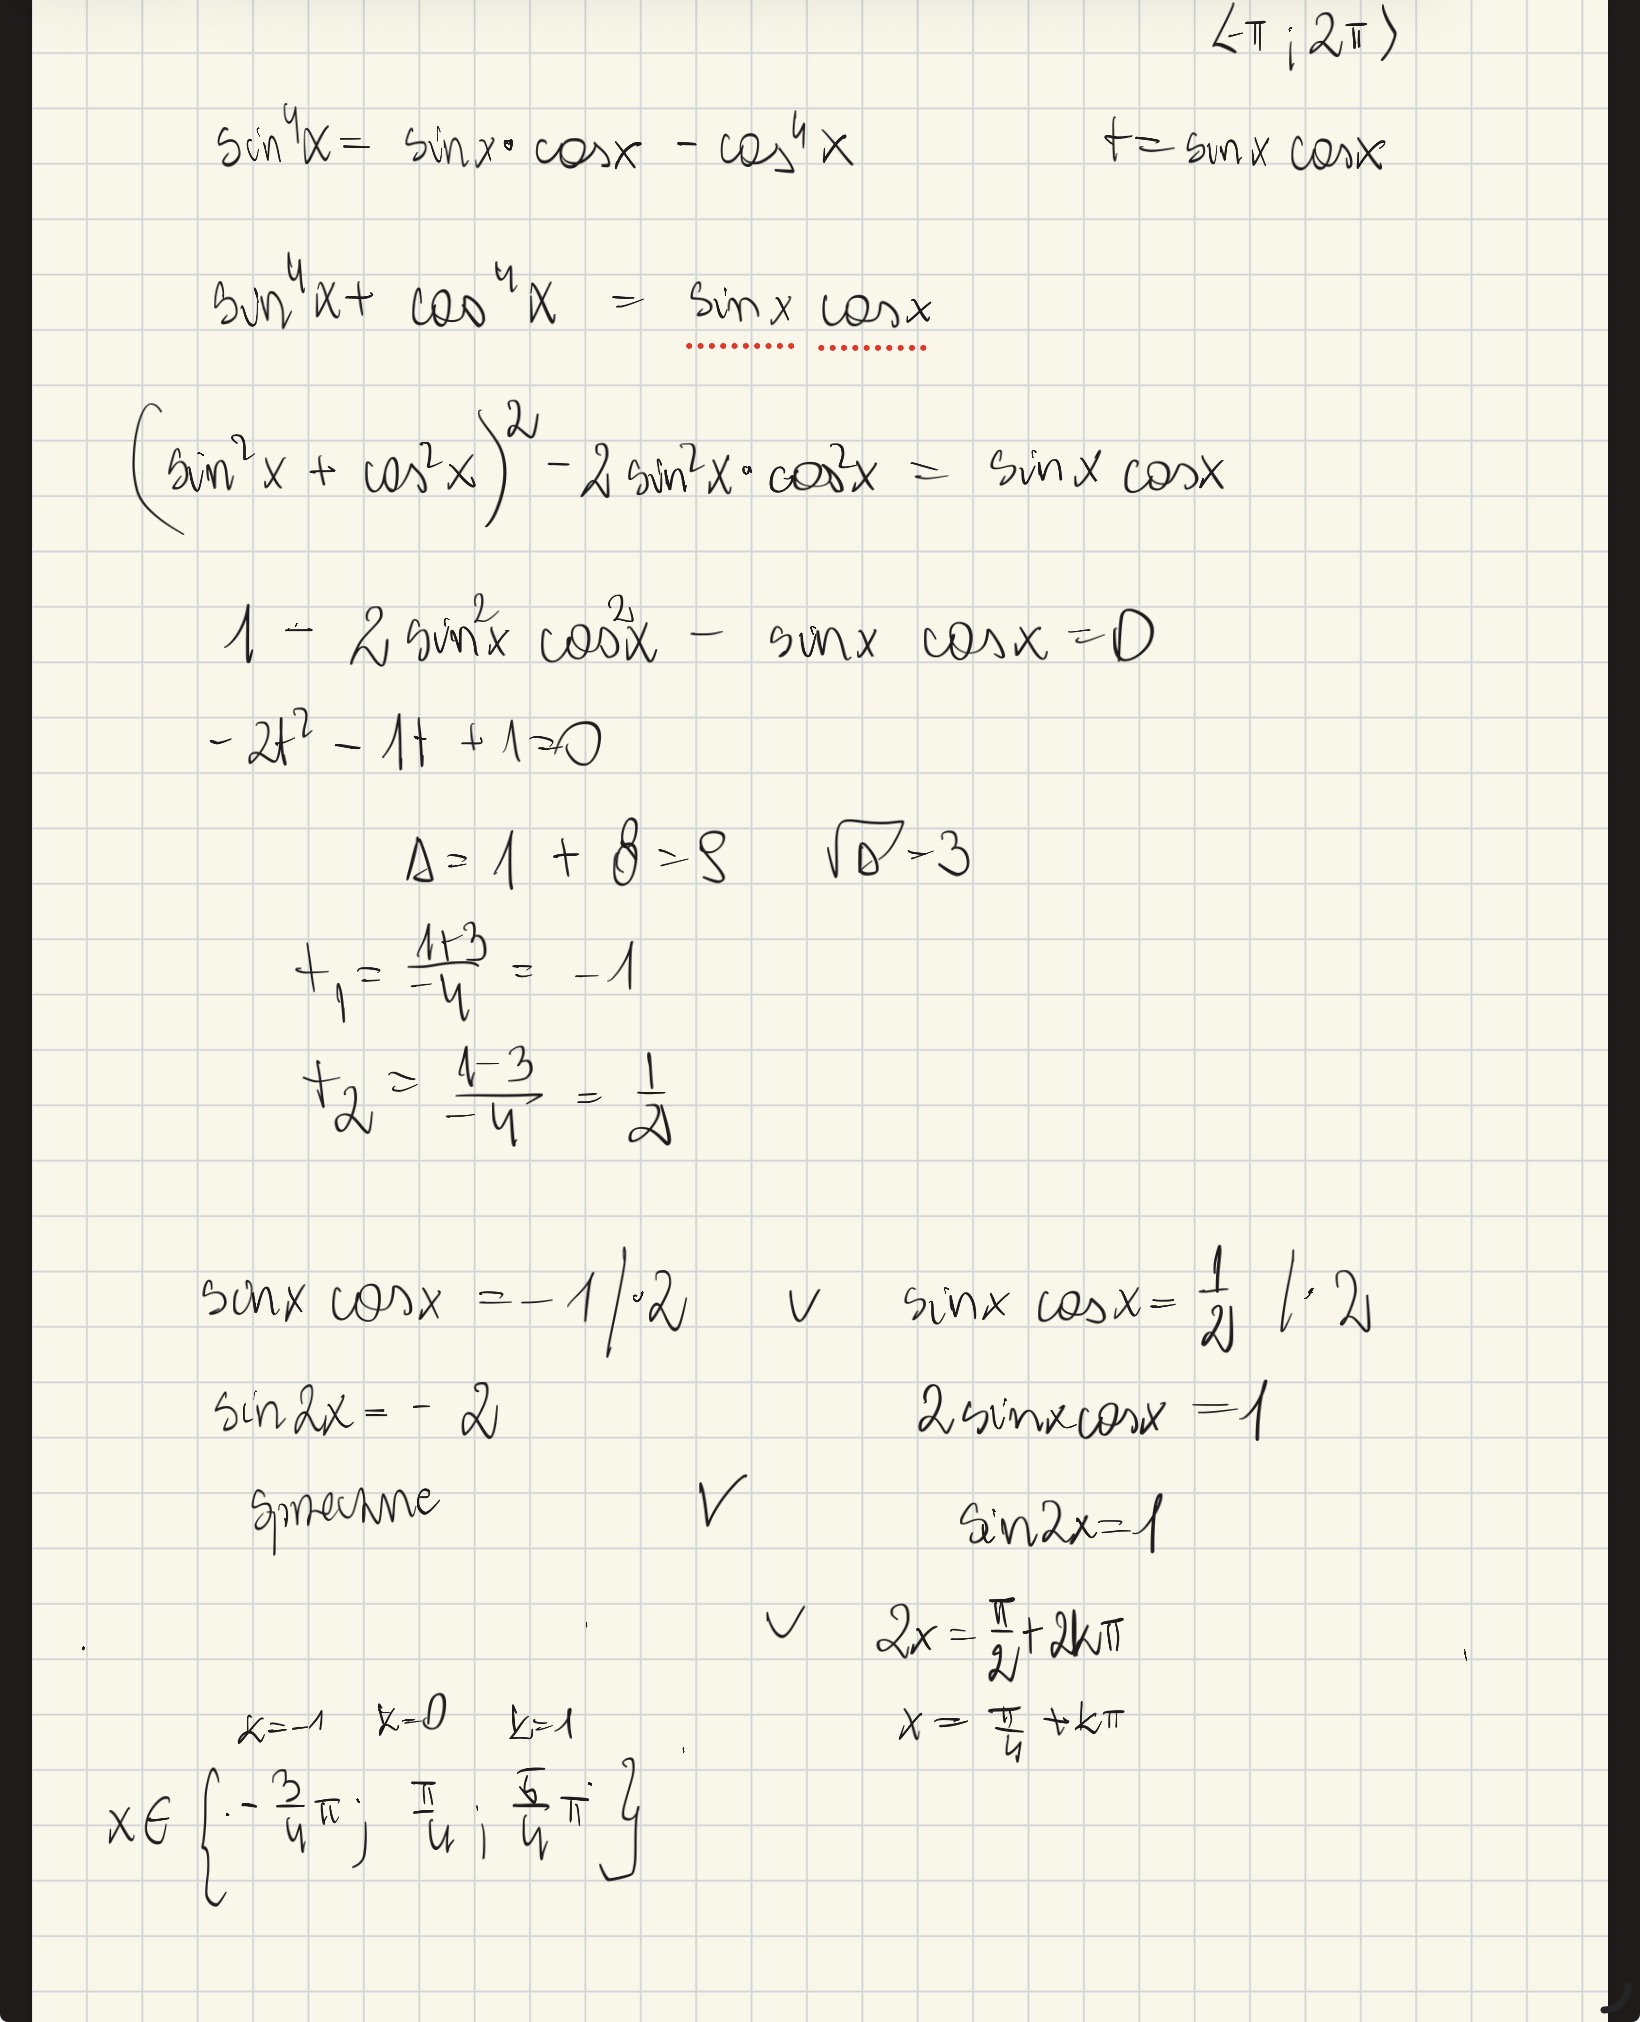 <-π ; 2π>
sin⁴x = sinx · cosx - cos⁴x t = sinx cosx
sin⁴x + cos⁴x = sinx cosx
(sin²x + cos²x)² - 2 sin²x · cos²x = sinx cosx
1 - 2 sin²x cos²x - sinx cosx = 0
-2t² - 1t + 1 = 0
Δ = 1 + 8 = 9 √Δ = 3
t₁ = (1+3)/(-4) = -1
t₂ = (1-3)/(-4) = 1/2
sinx cosx = -1 /·2 ∨ sinx cosx = 1/2 /·2
sin2x = -2 2sinxcosx = 1
sprzeczne ∨ sin2x = 1
∨ 2x = π/2 + 2kπ
k=-1 k=0 k=1 x = π/4 + kπ
x ∈ { -3/4 π ; π/4 ; 5/4 π }